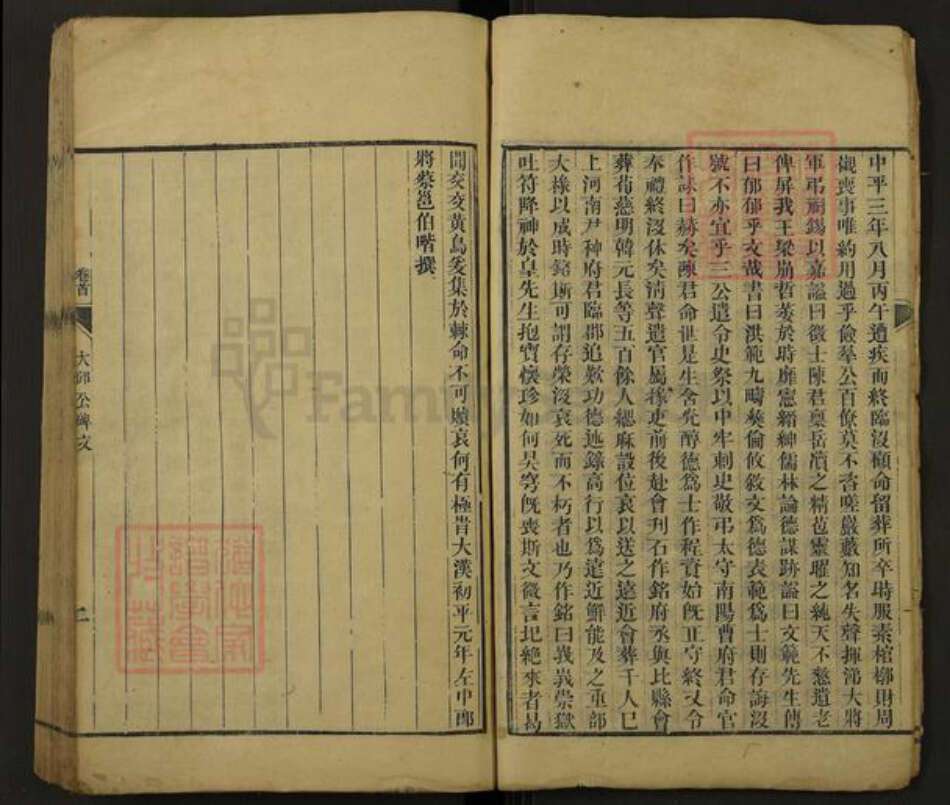 中平三年八月丙午遭疾而終臨沒顧命留葬所卒時服素棺槨財周
櫬喪事唯約用過乎儉羣公百僚莫不咨嗟巖藪知名失聲揮涕大將
軍弔祠錫以嘉謚曰徵士陳君稟岳瀆之精苞靈曜之純天不憖遺老
俾屏我王梁崩哲萎於時靡憲縉紳儒林論德謀跡謚曰文範先生傳
曰郁郁乎文哉書曰洪範九疇彛倫攸敘文爲德表範爲士則存誨沒
號不亦宜乎三公遣令史祭以中牢刺史敬弔太守南陽曹府君命官
作誄曰赫矣陳君命世是生含光醇德爲士作程資始旣正守終又令
奉禮終沒休矣淸聲遣官屬掾吏前後赴會刋石作銘府丞與比縣會
葬荀慈明韓元長等五百餘人緦麻設位哀以送之遠近會葬千人已
上河南尹种府君臨郡追歎功德述錄高行以爲遠近鮮能及之重部
大掾以成時銘斯可謂存榮沒哀死而不朽者也乃作銘曰峩峩崇嶽
吐符降神於皇先生抱寶懷珍如何昊穹旣喪斯文微言圮絕來者曷
聞交交黃鳥爰集於棘命不可贖哀何有極昔大漢初平元年左中郎
將蔡邕伯喈撰
卷首
大郎公碑文
二